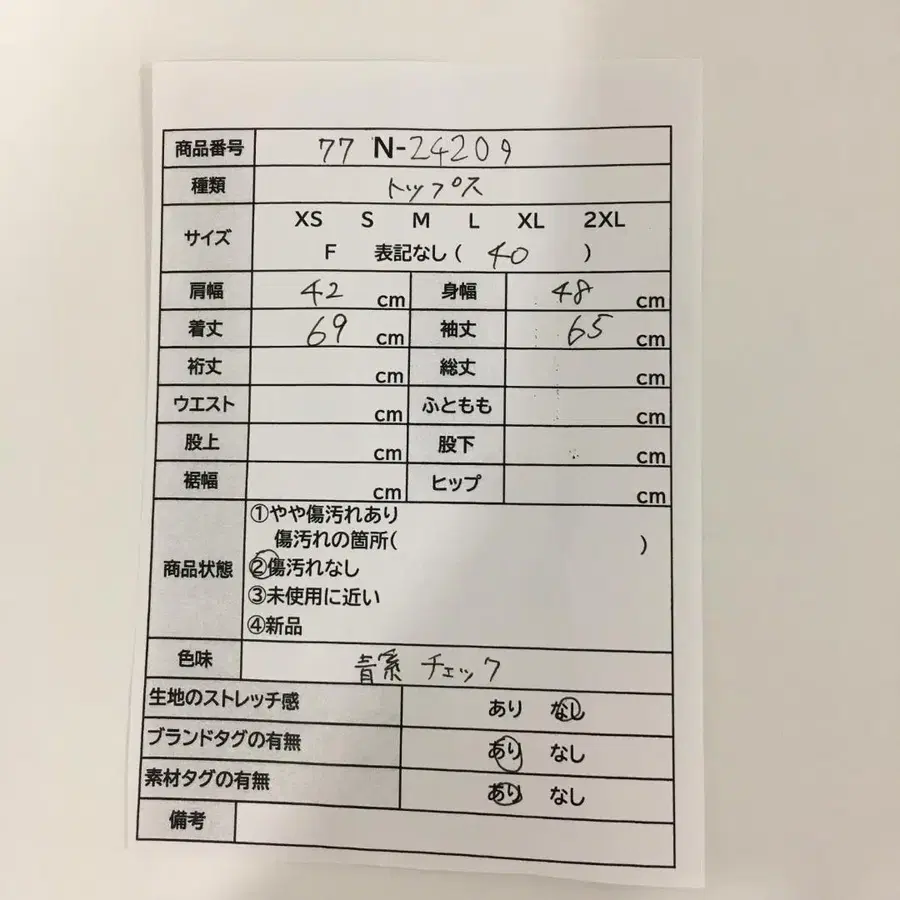 商品番号 77 N-24209
種類 トップス
サイズ XS S M L XL 2XL
F 表記なし ( 40 )
肩幅 42 cm 身幅 48 cm
着丈 69 cm 袖丈 65 cm
裄丈 cm 総丈 cm
ウエスト cm ふともも cm
股上 cm 股下 cm
裾幅 cm ヒップ cm
商品状態 ①やや傷汚れあり
傷汚れの箇所( )
②傷汚れなし
③未使用に近い
④新品
色味 青系 チェック
生地のストレッチ感 あり なし
ブランドタグの有無 あり なし
素材タグの有無 あり なし
備考